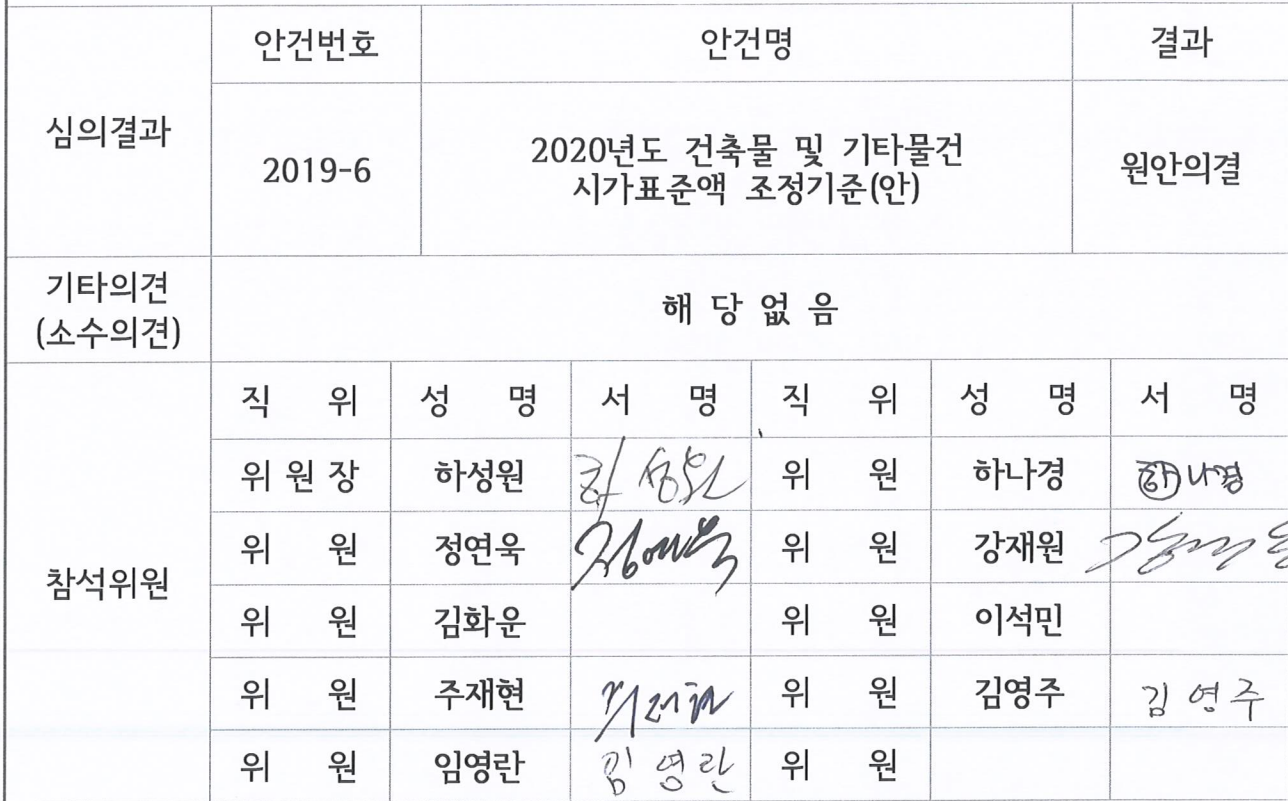 심의결과
안건번호 안건명 결과
2019-6
2020년도 건축물 및 기타물건
시가표준액 조정기준(안)
원안의결
기타의견
(소수의견)
해 당 없 음
참석위원
직 위 성 명 서 명 직 위 성 명 서 명
위 원 장 하성원 하성원 위 원 하나경 하나경
위 원 정연욱 정연욱 위 원 강재원
위 원 김화운 위 원 이석민
위 원 주재현 위 원 김영주 김영주
위 원 임영란 임영란 위 원